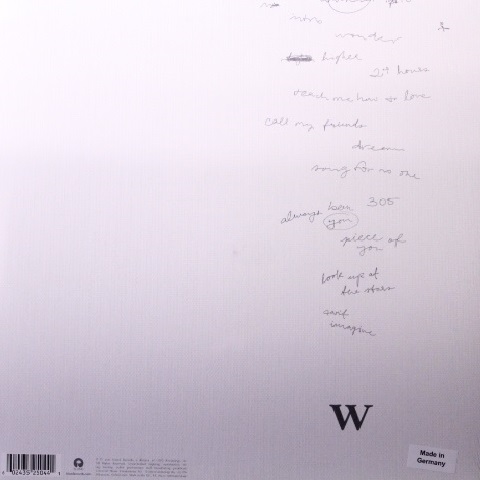 intro
wonder
higher
24 hours
teach me how to love
call my friends
dream
song for no one
305
always been
you
piece of
you
look up at
the stars
can't
imagine
W
Made in
Germany